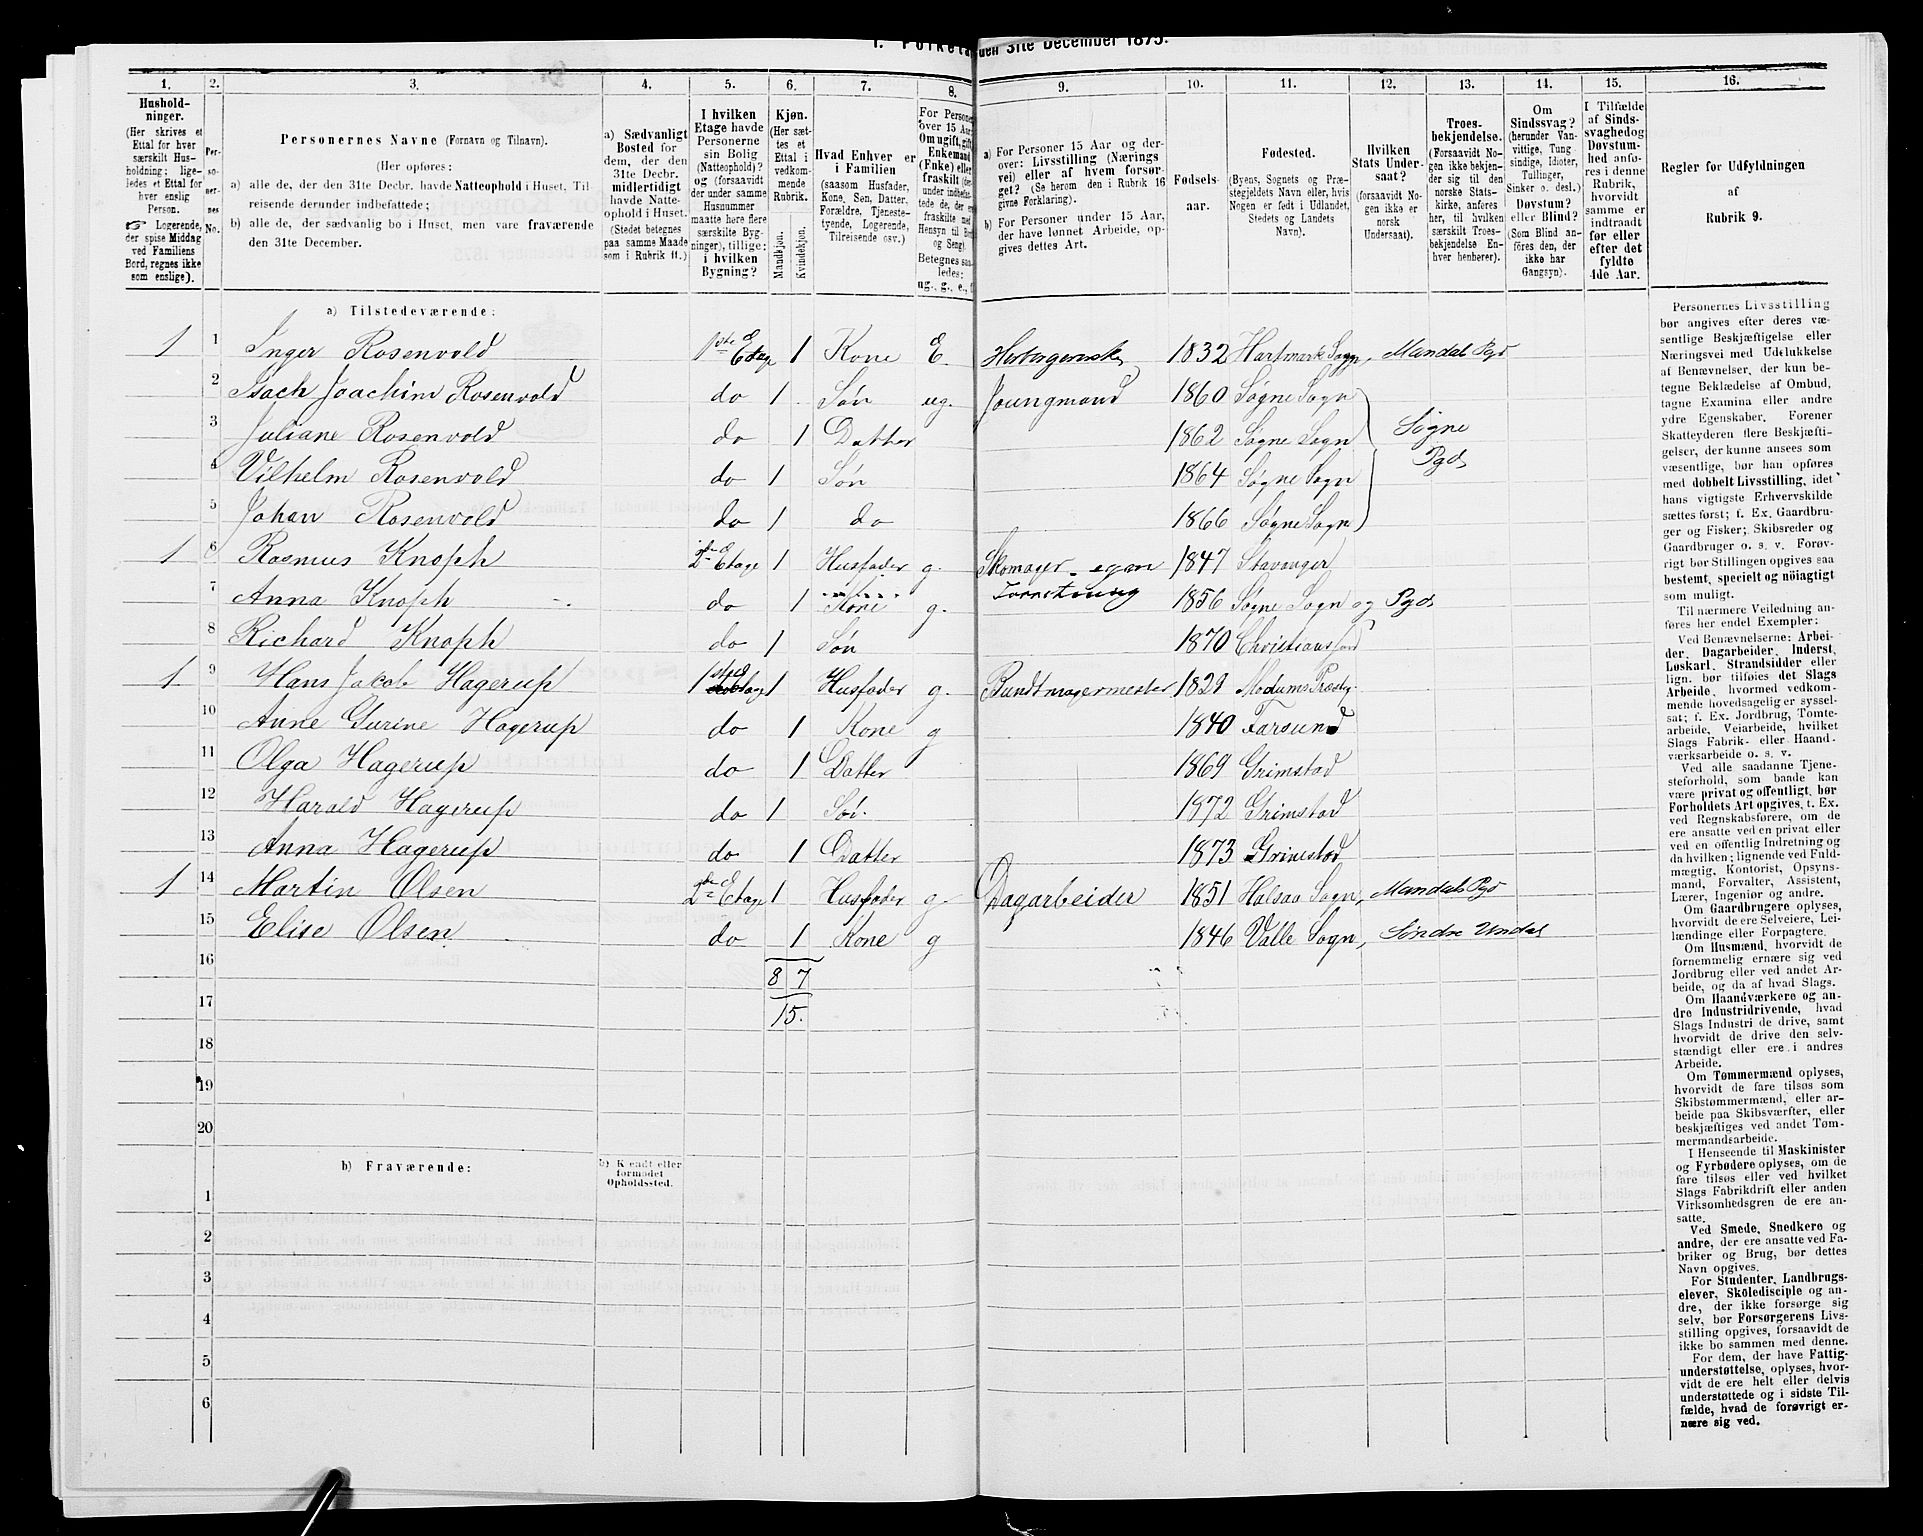 1. Folketæ den 31te December 1875.
1. 2. 3. 4. 5. 6. 7. 8. 9. 10. 11. 12. 13. 14. 15. 16.
Hushold-
ninger.
(Her skrives et
Ettal for hver
særskilt Hus-
holdning; lige-
ledes et Ettal for
hver enslig
Person.
☞ Logerende,
der spise Middag
ved Familiens
Bord, regnes ikke
som enslige).
Per-
so-
ner-
nes
No.
Personernes Navne (Fornavn og Tilnavn).
(Her opføres:
a) alle de, der den 31te Decbr. havde Natteophold i Huset, Til-
reisende derunder indbefattede;
b) alle de, der sædvanlig bo i Huset, men vare fraværende
den 31te December.
a) Sædvanligt
Bosted for
dem, der den
31te Decbr.
midlertidigt
havde Natte-
ophold i Huset.
(Stedet betegnes
paa samme Maade
som i Rubrik 11.)
I hvilken
Etage havde
Personerne
sin Bolig
(Natteophold)?
og (forsaavidt
der under samme
Husnummer
maatte høre flere
særskilte Byg-
ninger), tillige:
i hvilken
Bygning?
Kjøn.
(Her sæt-
tes et
Ettal i
vedkom-
mende
Rubrik.
Mandkjøn.
Kvindekjøn.
Hvad Enhver er
i Familien
(saasom Husfader,
Kone, Søn, Datter,
Forældre, Tjeneste-
tyende, Logerende,
Tilreisende osv.)
For Person
over 15 Aar
Om ugift, gift,
Enkemand
(Enke) eller
fraskilt
a) For Personer 15 Aar og der-
over: Livsstilling (Nærings
vei) eller af hvem forsør-
get? (Se herom den i Rubrik 16
givne Forklaring).
b) For Personer under 15 Aar,
der have lønnet Arbeide, op-
gives dettes Art.
Fødsels-
aar.
Fødested.
(Byens, Sognets og Præ-
stegjeldets Navn eller, hvis
Nogen er født i Udlandet,
Stedets og Landets
Navn).
Hvilken
Stats Under-
saat?
(forsaavidt No-
gen ikke er
norsk
Undersaat).
Troes-
bekjendelse.
(Forsaavidt No-
gen ikke bekjen-
der sig til den
norske Stats-
kirke, anføres
her, til hvilken
særskilt Troes-
bekjendelse En-
hver henhører).
Om
Sindssvag?
(herunder Van-
vittige, Tung-
sindige, Idioter,
Tullinger,
Sinker o. desl.)
Døvstum?
eller Blind?
(Som Blind an-
føres den, der
ikke har
Gangsyn).
I Tilfælde
af Sinds-
svaghed og
Døvstum-
hed anfø-
res i denne
Rubrik,
hvorvidt
samme er
indtraadt
før eller
efter det
fyldte
4de Aar.
Regler for Udfyldningen
af
Rubrik 9.
a) Tilstedeværende:
1 1 Inger Rosenvold 1ste Etage 1 Kone E. 1832 Hartmark Sogn, Mandal Pgd
2 Isach Joachim Rosenvold do 1 Søn ug. Joungmand 1860 Søgne Sogn
3 Juliane Rosenvold do 1 Datter 1862 Søgne Sogn Søgne
4 Vilhelm Rosenvold do 1 Søn 1864 Søgne Sogn Pgd
5 Johan Rosenvold do 1 do 1866 Søgne Sogn
1 6 Rasmus Knoph 2den Etage 1 Husfader g. Skomager egen 1847 Stavanger
7 Anna Knoph do 1 Kone g. Forretning 1856 Søgne Sogn og Pgd
8 Richard Knoph do 1 Søn 1870 Christianssand
1 9 Hans Jakob Hagerup 1ste Etage 1 Husfader g. Buntmagermester 1829 Modums Præstg.
10 Anne Gurine Hagerup do 1 Kone g 1840 Farsund
11 Olga Hagerup do 1 Datter 1869 Grimstad
12 Harald Hagerup do 1 Søn 1872 Grimstad
13 Anna Hagerup do 1 Datter 1873 Grimstad
1 14 Martin Olsen 2den Etage 1 Husfader g. Dagarbeider 1851 Halsaa Sogn, Mandals Pgd
15 Elise Olsen do 1 Kone g 1846 Valle Sogn, Søndre Undal
16 8 7
17 15.
18
19
20
b) Fraværende:
b) Kjendt eller
formodet
Opholdssted.
1
2
3
4
5
6
Personernes Livsstilling
bør angives efter deres væ-
sentlige Beskjæftigelse eller
Næringsvei med Udelukkelse
af Benævnelser, der kun be-
tegne Beklædelse af Ombud,
tagne Examina eller andre
ydre Egenskaber. Forener
Skatteyderen flere Beskjæfti-
gelser, der kunne ansees som
væsentlige, bør han opføres
med dobbelt Livsstilling, idet
hans vigtigste Erhvervskilde
sættes først; f. Ex. Gaardbru-
ger og Fisker; Skibsreder og
Gaardbruger o. s. v. Forøv-
rigt bør Stillingen opgives saa
bestemt, specielt og nøiagtigt
som muligt.
Til nærmere Veiledning an-
føres her endel Exempler:
Ved Benævnelserne: Arbei-
der, Dagarbeider, Inderst,
Løskarl, Strandsidder eller
lign. bør tilføies det Slags
Arbeide, hvormed vedkom-
mende hovedsagelig er syssel-
sat; f. Ex. Jordbrug, Tomte-
arbeide, Veiarbeide, hvilket
Slags Fabrik- eller Haand-
værksarbeide o. s. v.
Ved alle saadanne Tjene-
steforhold, som baade kan
være privat og offentligt, bør
Forholdets Art opgives, t. Ex.
ved Regnskabsførere, om de
ere ansatte ved en privat eller
ved en offentlig Indretning og
da hvilken; lignende ved Fuld-
mægtig, Kontorist, Opsyns-
mand, Forvalter, Assistent,
Lærer, Ingeniør og andre.
Om Gaardbrugere oplyses,
hvorvidt de ere Selveiere, Lei-
lændinge eller Forpagtere.
Om Husmænd, hvorvidt de
fornemmelig ernære sig ved
Jordbrug eller ved andet Ar-
beide, og da af hvad Slags.
Om Haandværkere og an-
dre Industridrivende, hvad
Slags Industri de drive, samt
hvorvidt de drive den selv-
stændigt eller ere i andres
Arbeide.
Om Tømmermænd oplyses,
hvorvidt de fare tilsøs som
Skibstømmermænd, eller ar-
beide paa Skibsværfter, eller
beskjæftiges ved andet Tøm-
mermandsarbeide.
I Henseende til Maskinister
og Fyrbødere oplyses, om de
fare tilsøs eller ved hvilket
Slags Fabrikdrift eller anden
Virksomhedsgren de ere an-
satte.
Ved Smede, Snedkere og
andre, der ere ansatte ved Fa-
briker og Brug, bør dettes
Navn opgives.
For Studenter, Landbrugs-
elever, Skoledisciple og an-
dre, der ikke forsørge sig
selv, bør Forsørgerens Livs-
stilling opgives, forsaavidt de
ikke bo sammen med denne.
For dem, der have Fattig-
understøttelse, oplyses, hvor-
vidt de ere helt eller delvis
understøttede og i sidste Til-
fælde, hvad de forøvrigt er-
nære sig ved.